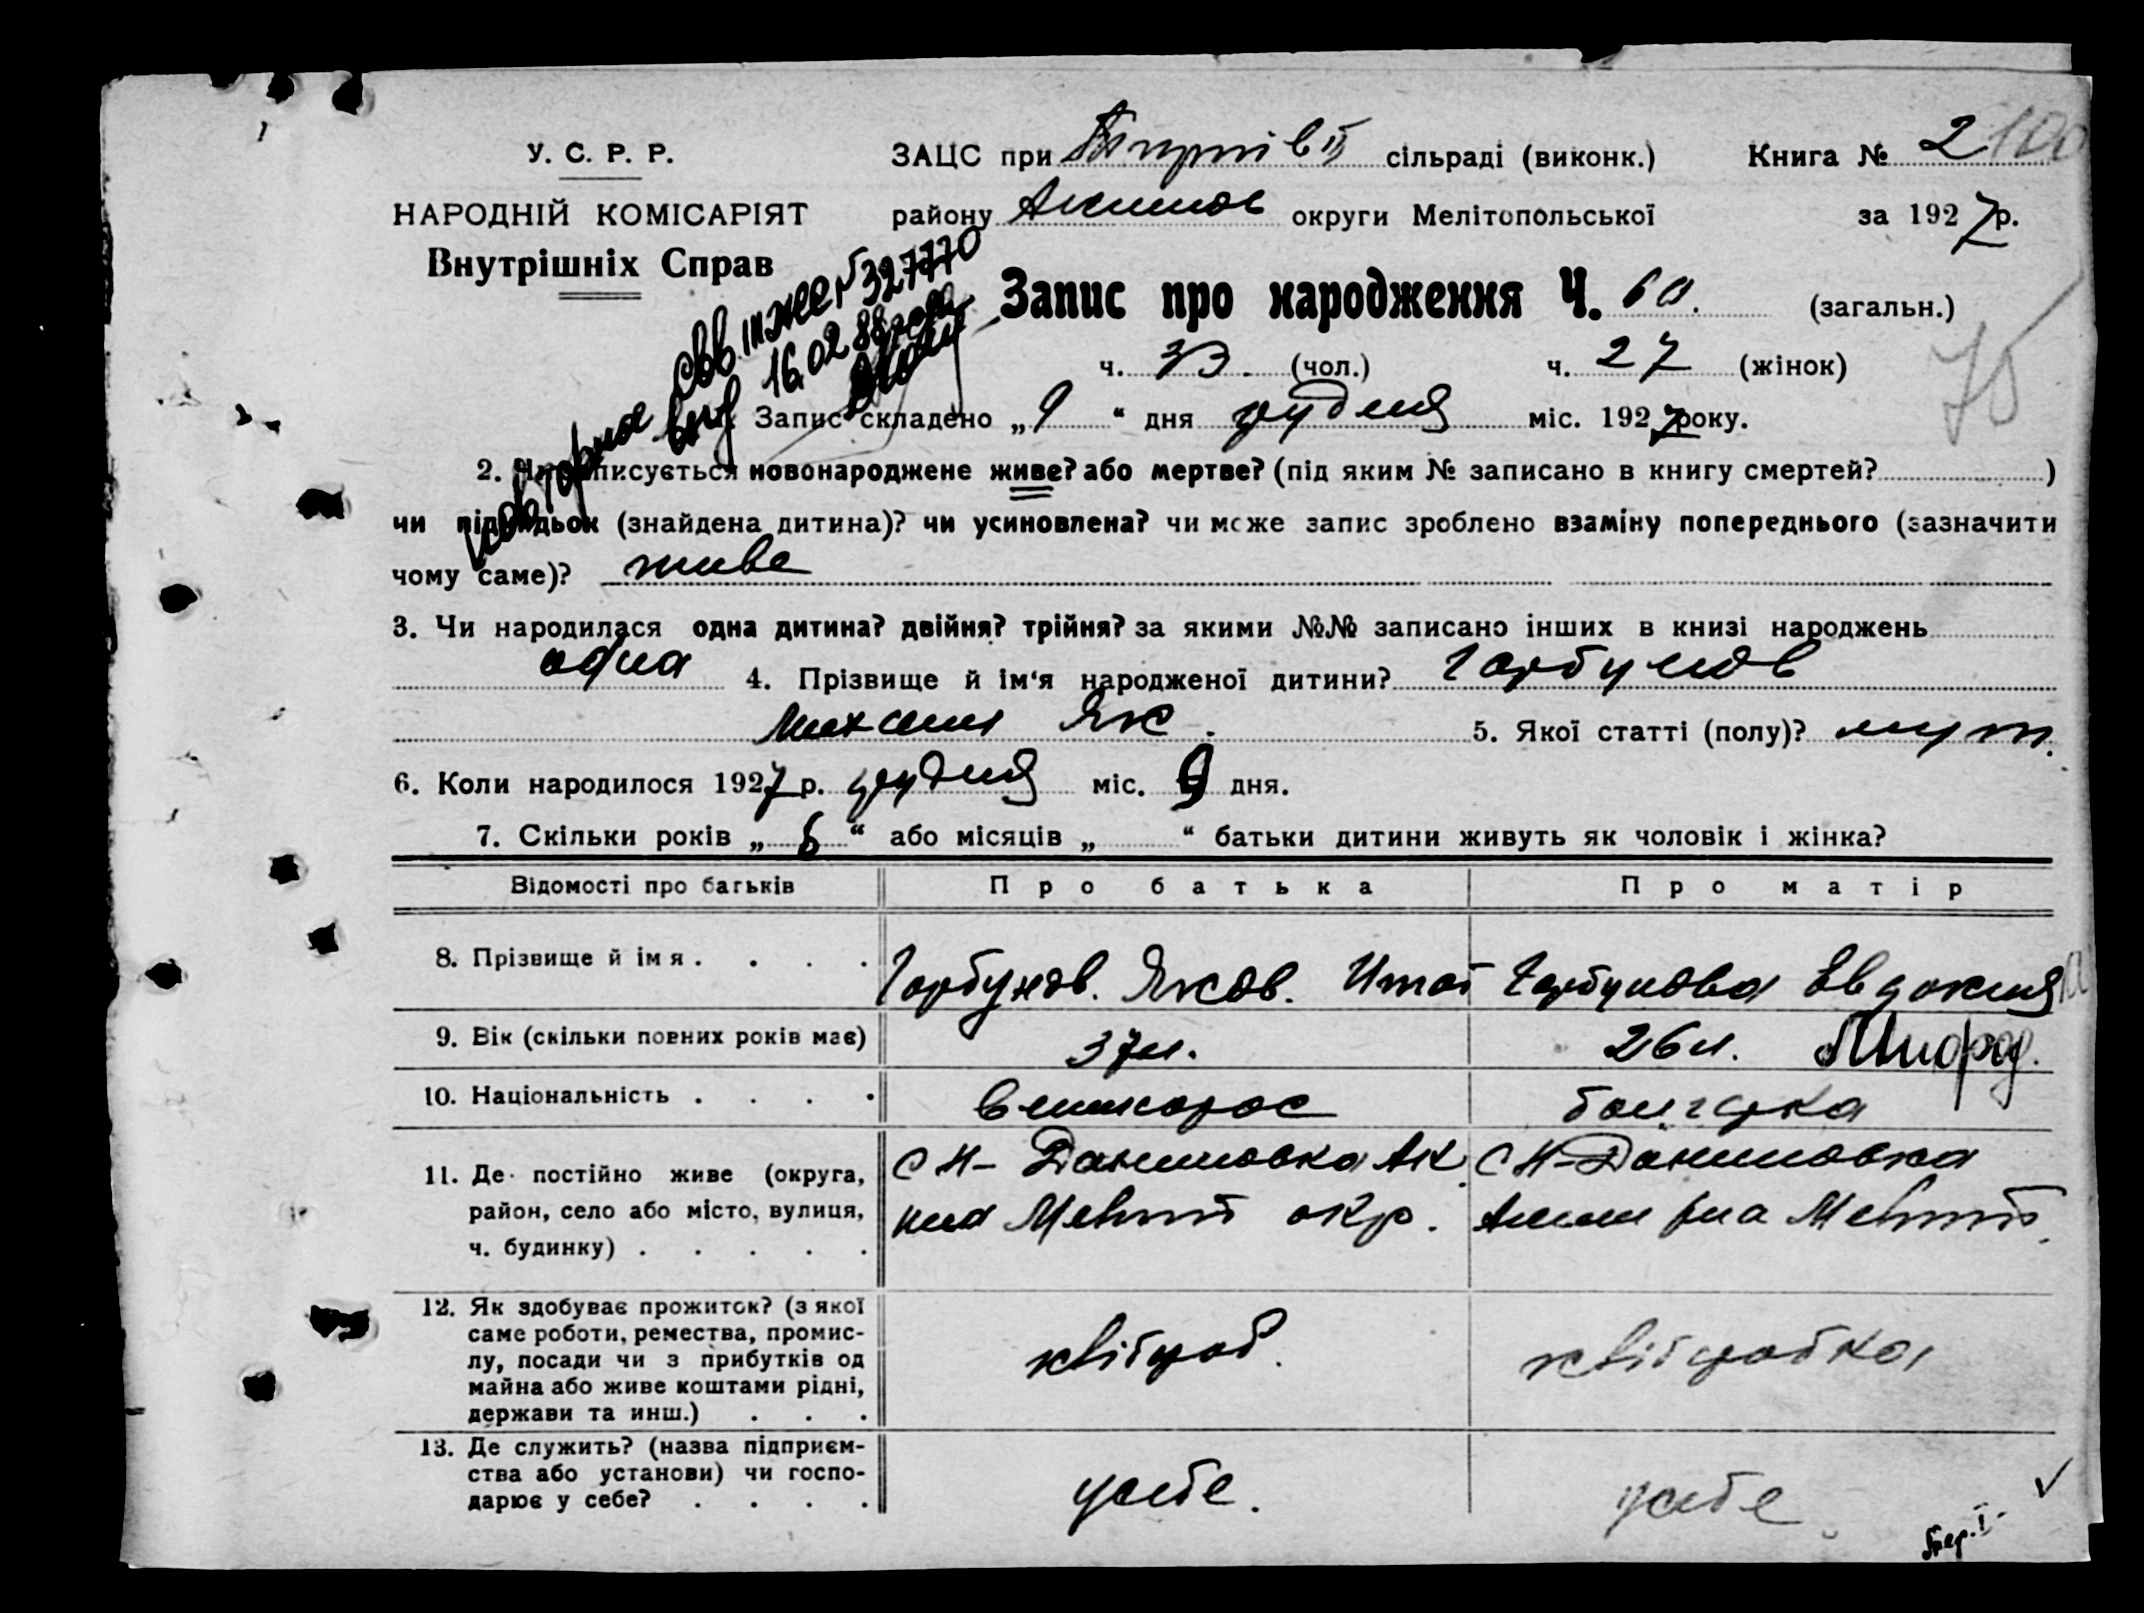 У. С. Р. Р.
НАРОДНІЙ КОМІСАРІЯТ
Внутрішніх Справ
ЗАЦС при сільраді (виконк.)
Книга № 2
району Акимов округи Мелітопольської
за 1927 р.
№ 327770
16.02.88
Запис про народження Ч. 60. (загальн.)
75
ч. 33. (чол.) ч. 27 (жінок)
Запис складено „ 9 “ дня грудня міс. 1927 року.
2. писується новонароджене живе? або мертве? (під яким № записано в книгу смертей? )
чи підкидьок (знайдена дитина)? чи усиновлена? чи може запис зроблено взаміну попереднього (зазначити
чому саме)? живе
3. Чи народилася одна дитина? двійня? трійня? за якими №№ записано інших в книзі народжень
одна 4. Прізвище й ім‘я народженої дитини? Горбунов
Михаил Як. 5. Якої статті (полу)? муж.
6. Коли народилося 1927 р. грудня міс. 9 дня.
7. Скільки років „ “ або місяців „ “ батьки дитини живуть як чоловік і жінка?
Відомості про батьків Про батька Про матір
8. Прізвище й імя . . . . Горбунов. Яков. Горбунова Евдокия
9. Вік (скільки повних років має) 37 л. 26 л.
10. Національність . . . . великорос болгарка
11. Де постійно живе (округа,
район, село або місто, вулиця,
ч. будинку) . . . . .
с Н-Даниловка Ак.
Меліт окр.
с Н-Даниловка
Аким р-на Меліт.
12. Як здобуває прожиток? (з якої
саме роботи, ремества, промис-
лу, посади чи з прибутків од
майна або живе коштами рідні,
держави та инш.) . . .
хлібороб.
хліборобка
13. Де служить? (назва підприєм-
ства або установи) чи госпо-
дарює у себе? . . . .
у себе.
у себе